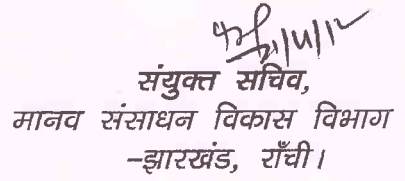 संयुक्त सचिव,
मानव संसाधन विकास विभाग
-झारखंड, राँची।